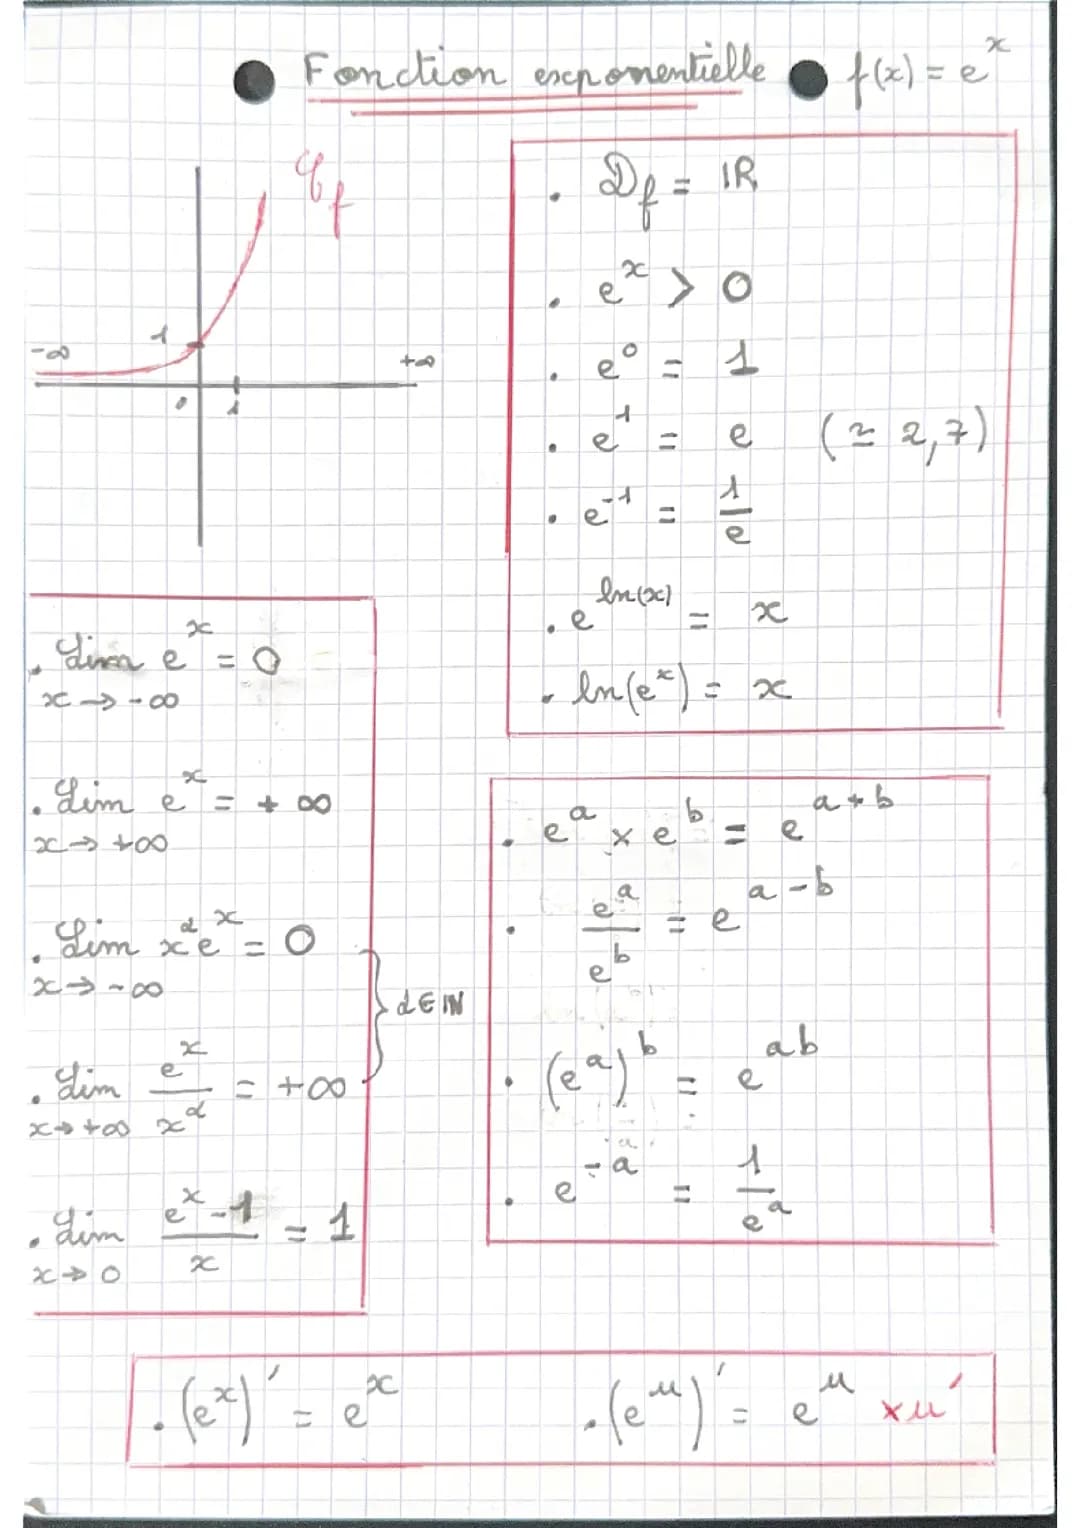 Fonction exponentielle f(x) = e^x
𝒞_f
1
-∞ +∞
0 1
• 𝒟_f = ℝ
• e^x > 0
• e^0 = 1
• e^1 = e (≃ 2,7)
• e^-1 = 1/e
• e^ln(x) = x
• ln(e^x) = x
• Lim e^x = 0
x → -∞
• Lim e^x = + ∞
x → +∞
• Lim x^α e^x = 0
x → -∞
α ∈ ℕ
• Lim e^x/x^α = +∞
x → +∞
• Lim (e^x - 1)/x = 1
x → 0
• e^a × e^b = e^(a+b)
• e^a/e^b = e^(a-b)
• (e^a)^b = e^ab
• e^-a = 1/e^a
• (e^x)' = e^x
• (e^u)' = e^u × u'